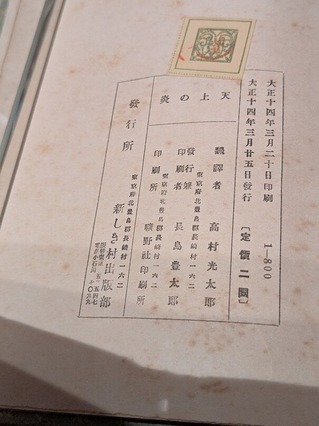 大正十四年三月二十日印刷
大正十四年三月廿五日發行
1—800
〔定價二圓〕
天上の炎
飜譯者 高村光太郎
發行兼印刷者 長島豊太郎
東京府北豊島郡長崎村一六二
印刷所 曠野社印刷所
東京府北豊島郡長崎村一六二
發行所 新しき村出版部
東京府北豊島郡長崎村一六二